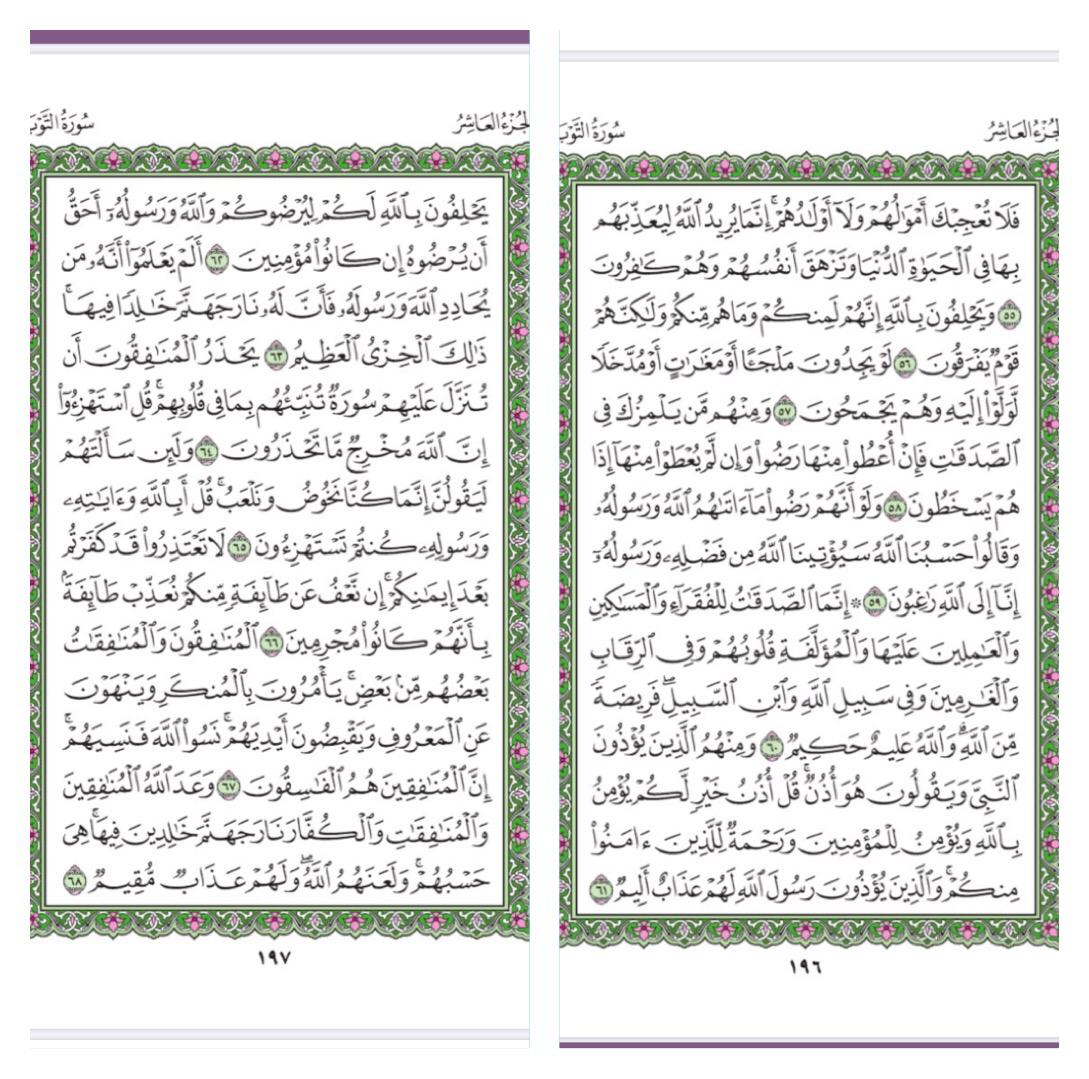 الجزء العاشر
سورة التوب
فَلَا تُعۡجِبۡكَ أَمۡوَٰلُهُمۡ وَلَآ أَوۡلَٰدُهُمۡۚ إِنَّمَا يُرِيدُ ٱللَّهُ لِيُعَذِّبَهُم
بِهَا فِي ٱلۡحَيَوٰةِ ٱلدُّنۡيَا وَتَزۡهَقَ أَنفُسُهُمۡ وَهُمۡ كَٰفِرُونَ
٥٥ وَيَحۡلِفُونَ بِٱللَّهِ إِنَّهُمۡ لَمِنكُمۡ وَمَا هُم مِّنكُمۡ وَلَٰكِنَّهُمۡ
قَوۡمٞ يَفۡرَقُونَ ٥٦ لَوۡ يَجِدُونَ مَلۡجَـًٔا أَوۡ مَغَٰرَٰتٍ أَوۡ مُدَّخَلٗا
لَّوَلَّوۡاْ إِلَيۡهِ وَهُمۡ يَجۡمَحُونَ ٥٧ وَمِنۡهُم مَّن يَلۡمِزُكَ فِي
ٱلصَّدَقَٰتِ فَإِنۡ أُعۡطُواْ مِنۡهَا رَضُواْ وَإِن لَّمۡ يُعۡطَوۡاْ مِنۡهَآ إِذَا
هُمۡ يَسۡخَطُونَ ٥٨ وَلَوۡ أَنَّهُمۡ رَضُواْ مَآ ءَاتَىٰهُمُ ٱللَّهُ وَرَسُولُهُۥ
وَقَالُواْ حَسۡبُنَا ٱللَّهُ سَيُؤۡتِينَا ٱللَّهُ مِن فَضۡلِهِۦ وَرَسُولُهُۥٓ
إِنَّآ إِلَى ٱللَّهِ رَٰغِبُونَ ٥٩ ۞ إِنَّمَا ٱلصَّدَقَٰتُ لِلۡفُقَرَآءِ وَٱلۡمَسَٰكِينِ
وَٱلۡعَٰمِلِينَ عَلَيۡهَا وَٱلۡمُؤَلَّفَةِ قُلُوبُهُمۡ وَفِي ٱلرِّقَابِ
وَٱلۡغَٰرِمِينَ وَفِي سَبِيلِ ٱللَّهِ وَٱبۡنِ ٱلسَّبِيلِۖ فَرِيضَةٗ
مِّنَ ٱللَّهِۗ وَٱللَّهُ عَلِيمٌ حَكِيمٞ ٦٠ وَمِنۡهُمُ ٱلَّذِينَ يُؤۡذُونَ
ٱلنَّبِيَّ وَيَقُولُونَ هُوَ أُذُنٞۚ قُلۡ أُذُنُ خَيۡرٖ لَّكُمۡ يُؤۡمِنُ
بِٱللَّهِ وَيُؤۡمِنُ لِلۡمُؤۡمِنِينَ وَرَحۡمَةٞ لِّلَّذِينَ ءَامَنُواْ
مِنكُمۡۚ وَٱلَّذِينَ يُؤۡذُونَ رَسُولَ ٱللَّهِ لَهُمۡ عَذَابٌ أَلِيمٞ ٦١
١٩٦
الجزء العاشر
سورة التوب
يَحۡلِفُونَ بِٱللَّهِ لَكُمۡ لِيُرۡضُوكُمۡ وَٱللَّهُ وَرَسُولُهُۥٓ أَحَقُّ
أَن يُرۡضُوهُ إِن كَانُواْ مُؤۡمِنِينَ ٦٢ أَلَمۡ يَعۡلَمُوٓاْ أَنَّهُۥ مَن
يُحَادِدِ ٱللَّهَ وَرَسُولَهُۥ فَأَنَّ لَهُۥ نَارَ جَهَنَّمَ خَٰلِدٗا فِيهَاۚ
ذَٰلِكَ ٱلۡخِزۡيُ ٱلۡعَظِيمُ ٦٣ يَحۡذَرُ ٱلۡمُنَٰفِقُونَ أَن
تُنَزَّلَ عَلَيۡهِمۡ سُورَةٞ تُنَبِّئُهُم بِمَا فِي قُلُوبِهِمۡۚ قُلِ ٱسۡتَهۡزِءُوٓاْ
إِنَّ ٱللَّهَ مُخۡرِجٞ مَّا تَحۡذَرُونَ ٦٤ وَلَئِن سَأَلۡتَهُمۡ
لَيَقُولُنَّ إِنَّمَا كُنَّا نَخُوضُ وَنَلۡعَبُۚ قُلۡ أَبِٱللَّهِ وَءَايَٰتِهِۦ
وَرَسُولِهِۦ كُنتُمۡ تَسۡتَهۡزِءُونَ ٦٥ لَا تَعۡتَذِرُواْ قَدۡ كَفَرۡتُم
بَعۡدَ إِيمَٰنِكُمۡۚ إِن نَّعۡفُ عَن طَآئِفَةٖ مِّنكُمۡ نُعَذِّبۡ طَآئِفَةَۢ
بِأَنَّهُمۡ كَانُواْ مُجۡرِمِينَ ٦٦ ٱلۡمُنَٰفِقُونَ وَٱلۡمُنَٰفِقَٰتُ
بَعۡضُهُم مِّنۢ بَعۡضٖۚ يَأۡمُرُونَ بِٱلۡمُنكَرِ وَيَنۡهَوۡنَ
عَنِ ٱلۡمَعۡرُوفِ وَيَقۡبِضُونَ أَيۡدِيَهُمۡۚ نَسُواْ ٱللَّهَ فَنَسِيَهُمۡۚ
إِنَّ ٱلۡمُنَٰفِقِينَ هُمُ ٱلۡفَٰسِقُونَ ٦٧ وَعَدَ ٱللَّهُ ٱلۡمُنَٰفِقِينَ
وَٱلۡمُنَٰفِقَٰتِ وَٱلۡكُفَّارَ نَارَ جَهَنَّمَ خَٰلِدِينَ فِيهَاۚ هِيَ
حَسۡبُهُمۡۚ وَلَعَنَهُمُ ٱللَّهُۖ وَلَهُمۡ عَذَابٞ مُّقِيمٞ ٦٨
١٩٧